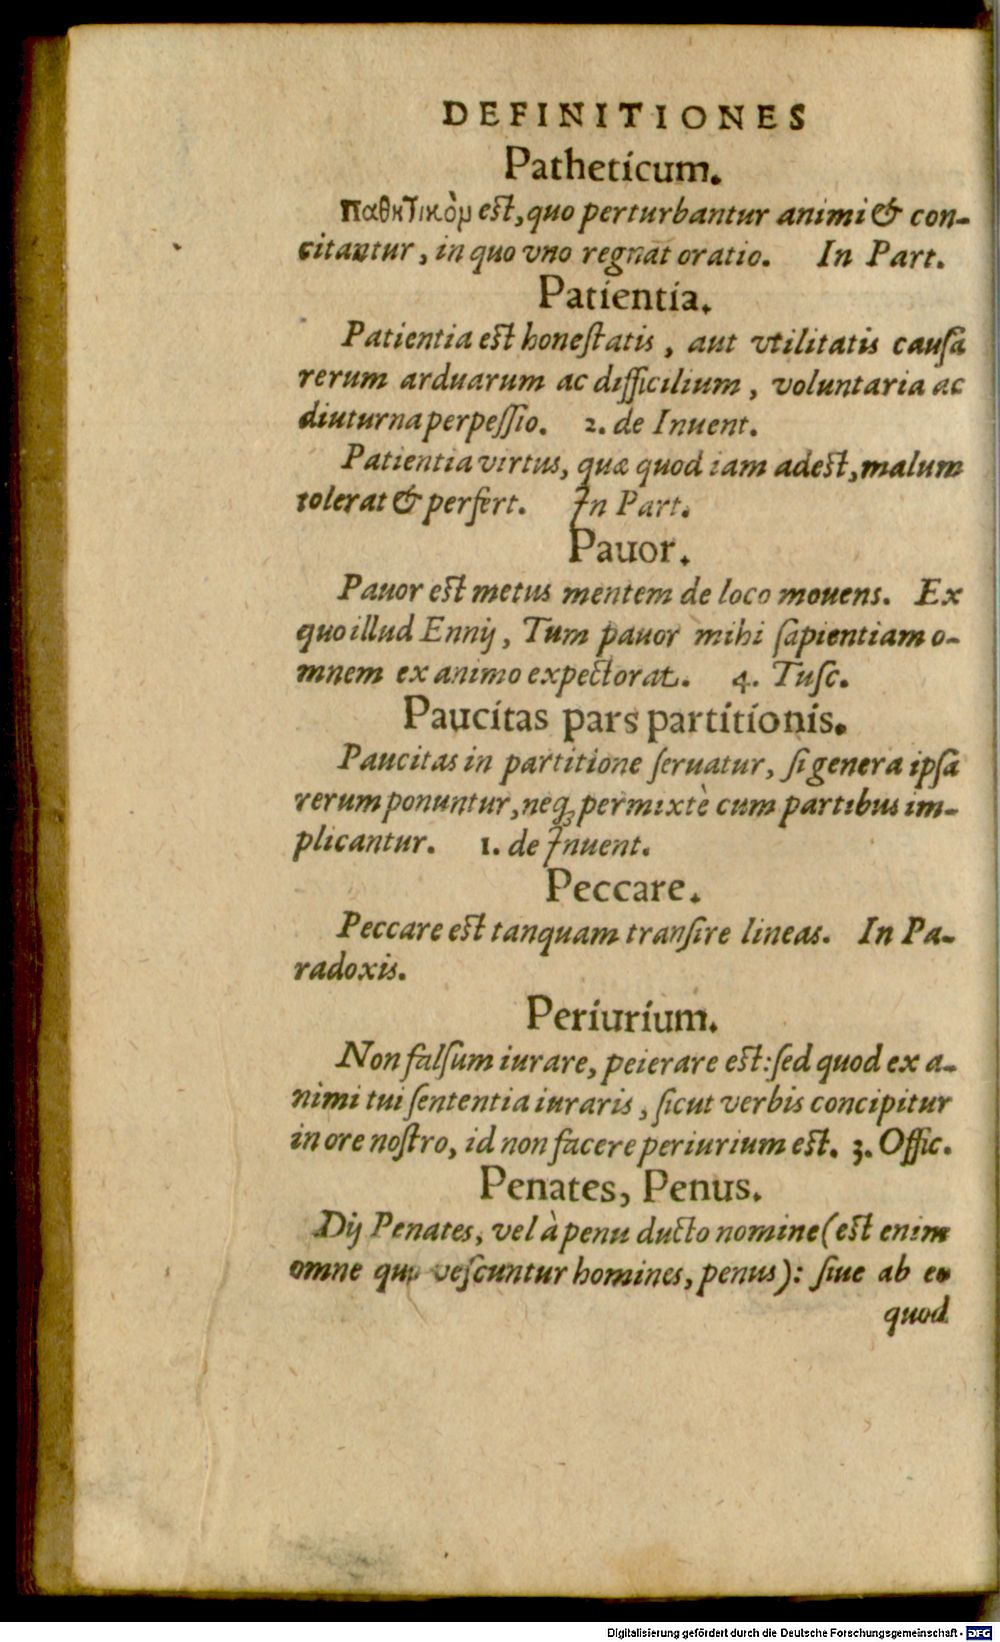 DEFINITIONES
Patheticum.
Παθητικὸν est, quo perturbantur animi & con-
citantur, in quo vno regnat oratio. In Part.
Patientia.
Patientia est honeſtatis, aut vtilitatis cauſa
rerum arduarum ac difficilium, voluntaria ac
diuturna perpeſſio. 2. de Inuent.
Patientia virtus, quæ quod iam adest, malum
tolerat & perfert. In Part.
Pauor.
Pauor est metus mentem de loco mouens. Ex
quo illud Ennij, Tum pauor mihi ſapientiam o-
mnem ex animo expectorat. 4. Tuſc.
Paucitas pars partitionis.
Paucitas in partitione ſeruatur, ſi genera ipſa
rerum ponuntur, neq; permixtè cum partibus im-
plicantur. 1. de Inuent.
Peccare.
Peccare est tanquam tranſire lineas. In Pa-
radoxis.
Periurium.
Non falſum iurare, peierare est: ſed quod ex a-
nimi tui ſententia iuraris, ſicut verbis concipitur
in ore noſtro, id non facere periurium est. 3. Offic.
Penates, Penus.
Dij Penates, vel à penu ducto nomine (est enim
omne quo veſcuntur homines, penus): ſiue ab eo
quod
Digitalisierung gefördert durch die Deutsche Forschungsgemeinschaft - DFG